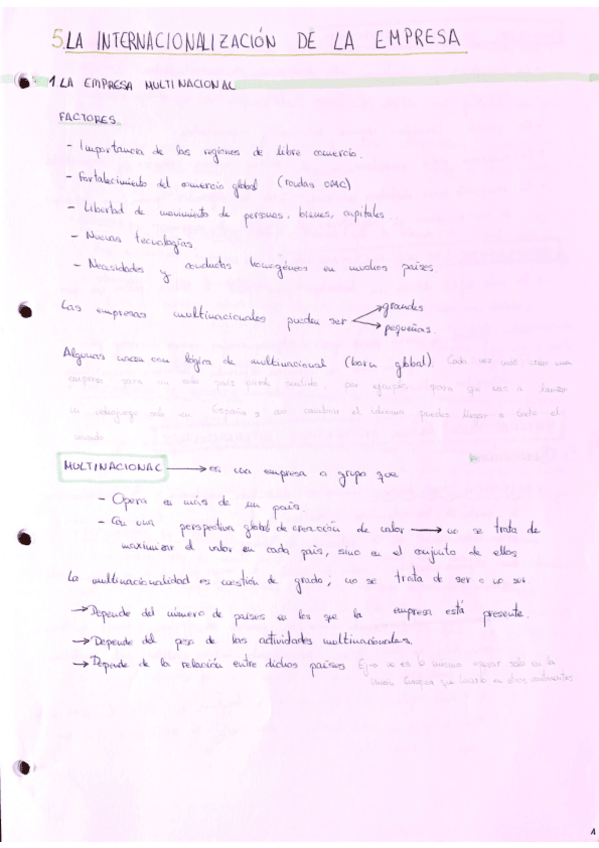 5. LA INTERNACIONALIZACIÓN DE LA EMPRESA
1 LA EMPRESA MULTINACIONAL
FACTORES.
- Importancia de las regiones de libre comercio.
- Fortalecimiento del comercio global (rondas OMC)
- Libertad de movimiento de personas, bienes, capitales...
- Nuevas tecnologías
- Necesidades y conductas homogéneas en muchos países
Las empresas multinacionales pueden ser → grandes
→ pequeñas.
Algunas nacen con lógica de multinacional (born global). Cada vez más crear una
empresa para un solo país pierde sentido, por ejemplo, para qué vas a lanzar
un videojuego solo en España si al cambiar el idioma puedes llegar a todo el
mundo
MULTINACIONAL → es una empresa o grupo que
- Opera en más de un país.
- Con una perspectiva global de creación de valor → no se trata de
maximizar el valor en cada país, sino en el conjunto de ellos
La multinacionalidad es cuestión de grado; no se trata de ser o no ser
→ Depende del número de países en los que la empresa está presente.
→ Depende del peso de las actividades multinacionales.
→ Depende de la relación entre dichos países Ej→ no es lo mismo operar solo en la
Unión Europea que hacerlo en otros continentes
1